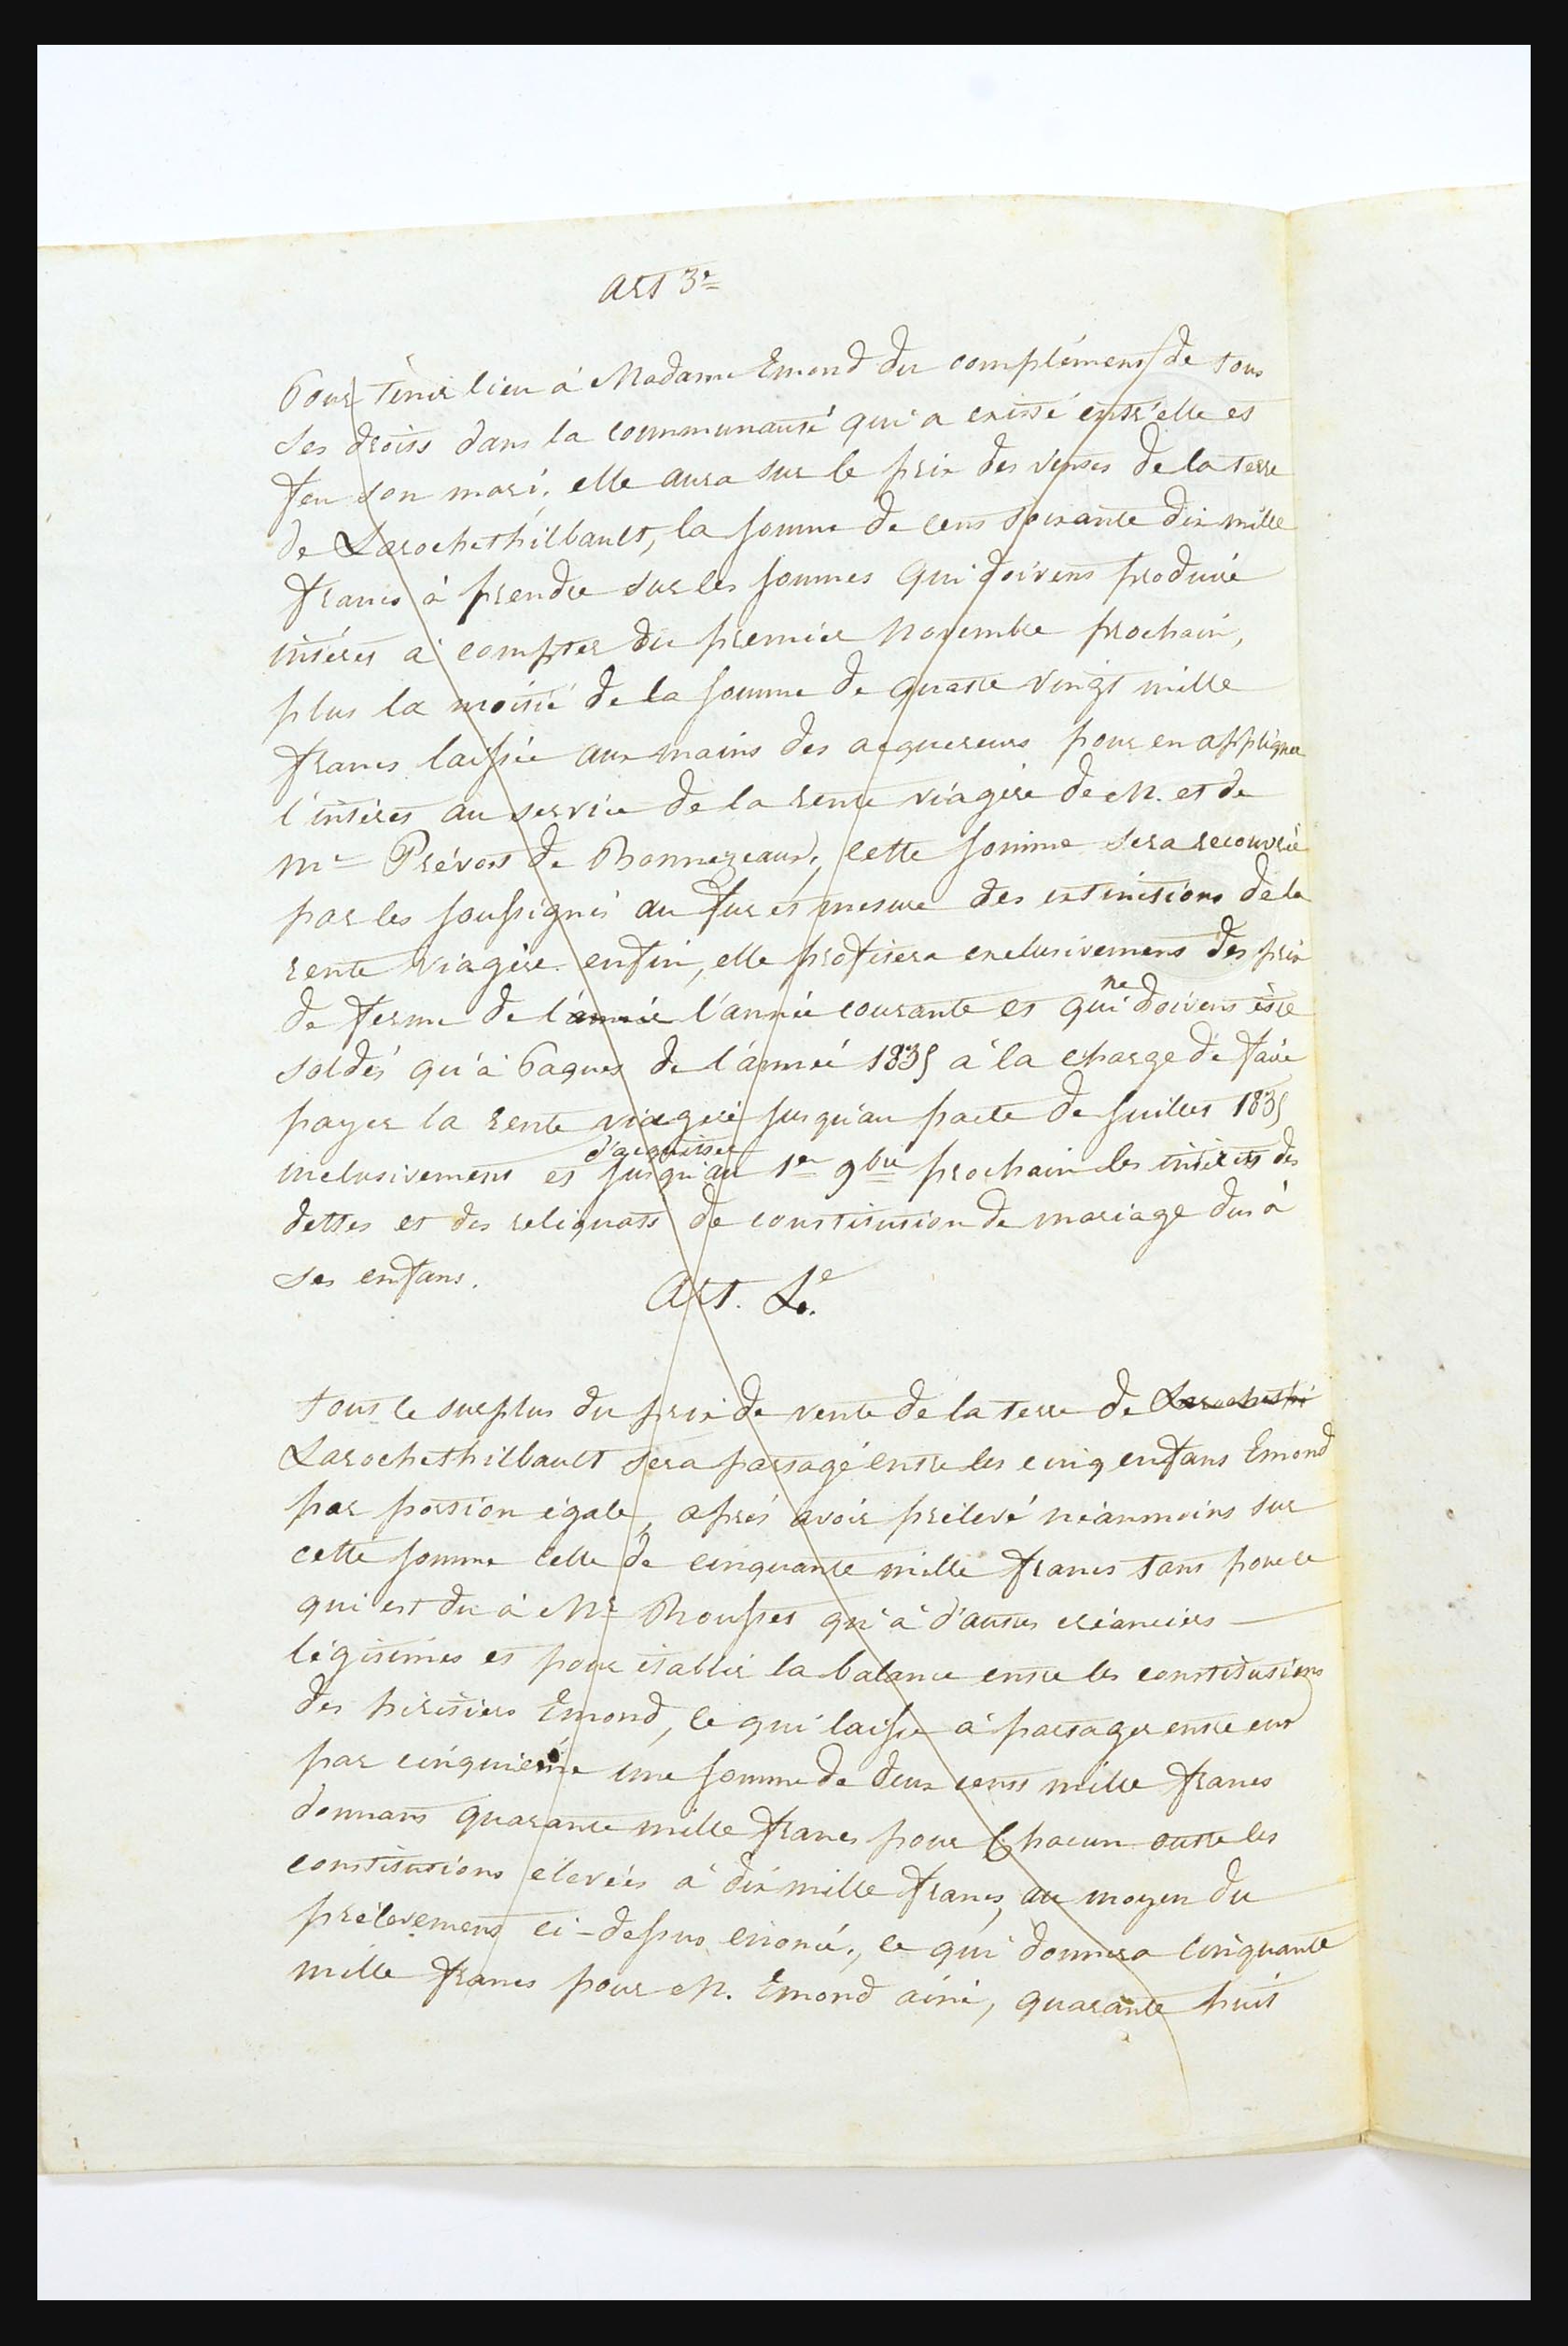 Art 3e
Pour tenir lieu à Madame Emond du complément de tous
ses droits dans la communauté qui a existé entr'elle et
feu son mari, elle aura sur le prix des ventes de la terre
de Larochethilbault, la somme de cent soixante dix mille
francs à prendre sur les sommes qui doivent produire
intérêt à compter du premier novembre prochain,
plus la moitié de la somme de quatre vingt mille
francs laissée aux mains des acquereurs pour en appliquer
l'intérêt au service de la rente viagère de M. et de
Me Prévost de Bonnezeaux, cette somme sera recouvrée
par les soussignés au fur et mesure des extinctions de la
rente viagère. enfin, elle profitera exclusivement des prix
de ferme de l'année l'année courante et qui ne doivent être
soldés qu'à Paques de l'année 1835 à la charge de faire
payer la rente viagère jusqu'au pacte de Juillet 1835
inclusivement et d'acquitter jusqu'au 1er 9bre prochain les intérêts des
dettes et des reliquats de constitution de mariage dus à
ses enfans.
Art. 4e.
Tout le surplus du prix de vente de la terre de Larochethi
Larochethilbault sera partagé entre les cinq enfans Emond
par portion égale, après avoir prélevé néanmoins sur
cette somme celle de cinquante mille francs tant pour ce
qui est du à Mr Rousset qu'à d'autres créanciers
légitimes et pour établir la balance entre les constitutions
des héritiers Emond, ce qui laisse à partager entre eux
par cinquième une somme de deux cents mille francs
donnant quarante mille francs pour Chacun outre les
constitutions élevées à dix mille francs, au moyen du
prélevement ci-dessus énoncé, ce qui donnera cinquante
mille francs pour M. Emond ainé, quarante huit